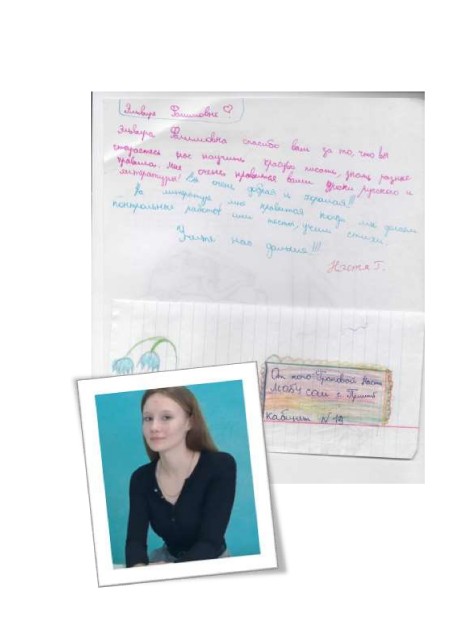 Эльвире Фаиловне ♡
Эльвира спасибо вам за то, что вы
стараетесь нас научить красиво писать, знать разные
правила. Мне очень нравятся ваши уроки русского и
литературы! Вы очень добрая и
На литературе мне нравится когда мы делаем
контрольные работы, учим стихи.
Учите нас дальше!!!
Настя Г.
От кого: Насти
МОБУ СОШ с.
кабинет N-19